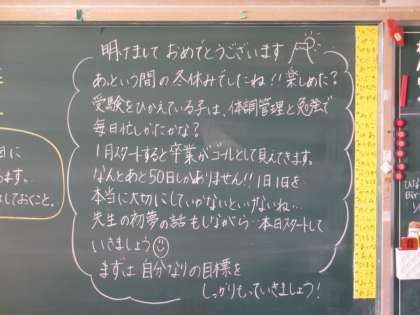 明けまして おめでとうございます
あっという間の冬休みでしたね!!楽しめた?
受験をひかえている子は、体調管理と勉強で
毎日忙しかったかな?
1月スタートすると卒業がゴールとして見えてきます。
なんとあと50日しかありません!!1日1日を
本当に大切にしていかないといけないね…
先生の初夢の話もしながら…本日スタートして
いきましょう
まずは 自分なりの目標を
しっかりもっていきましょう!
日に
ます。
しておくこと。